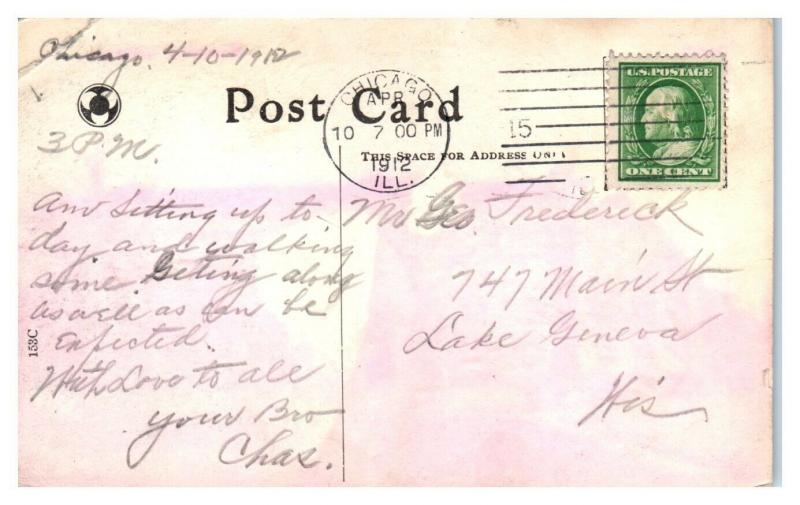 Chicago, 4-10-1912
Post Card
CHICAGO
APR
10 7 00 PM
1912
ILL.
15
U.S. POSTAGE
ONE CENT
THIS SPACE FOR ADDRESS ONLY
3 P.M.
Am Sitting up to-
day and walking
some. Geting along
as well as can be
Expected.
With Love to all
your Bro
Chas.
Mr Geo. Frederick
747 Main St
Lake Geneva
Wis
153C